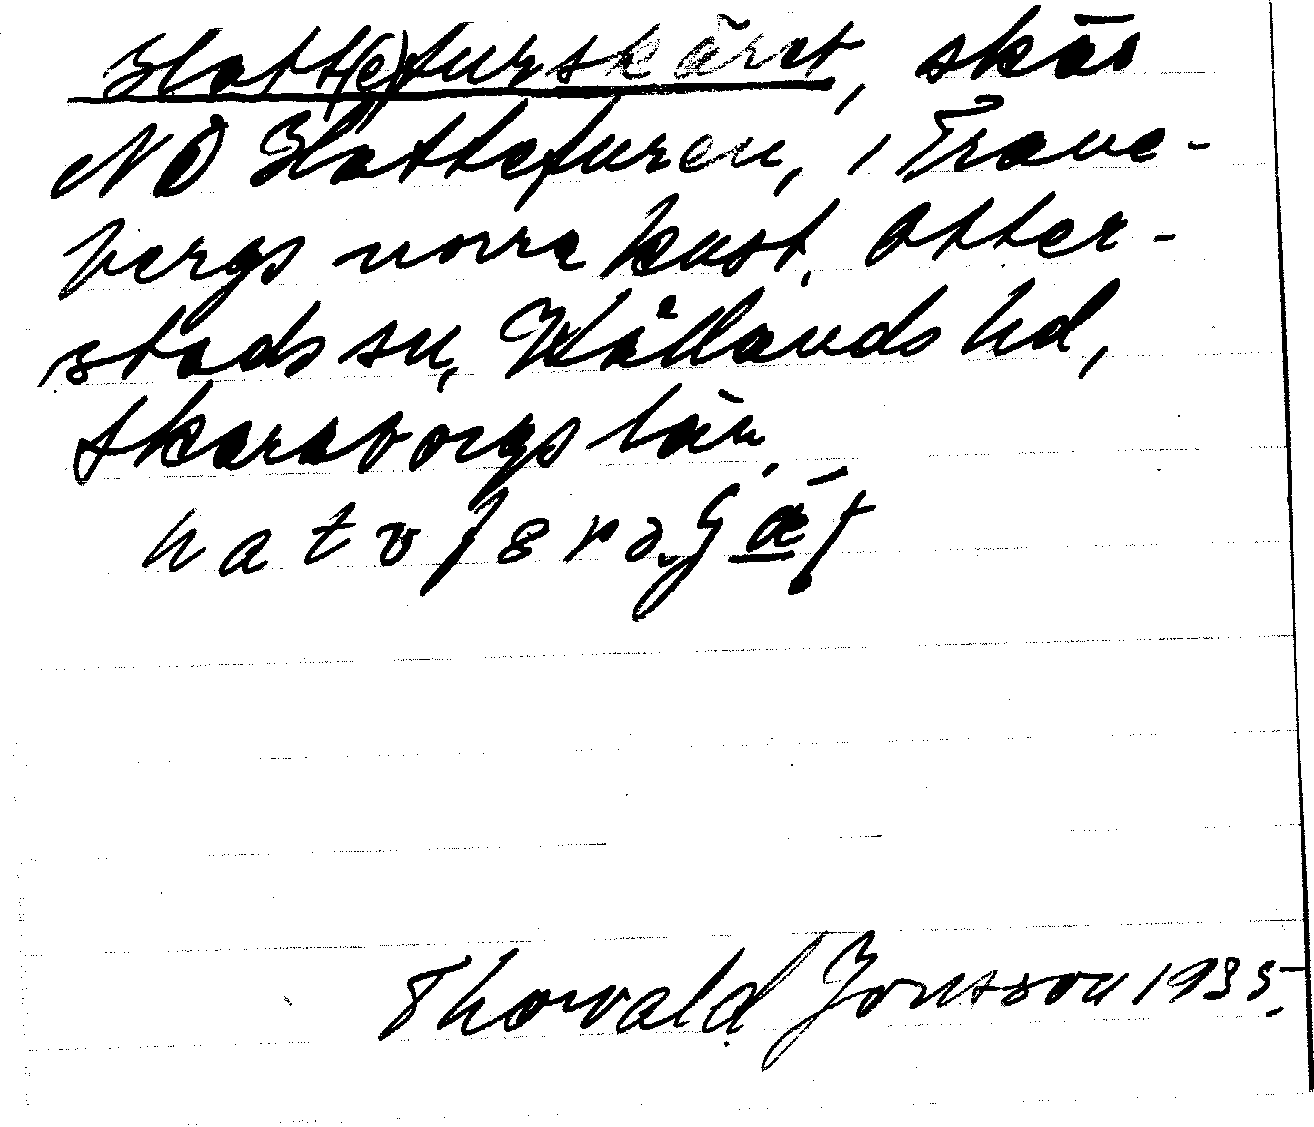 Hatt(e)furskäret, skär
NÖ Hattefuren, i Trane-
bergs norra kust, Otter-
stads sn, Kållands hd,
Skaraborgs län.
Thorvald Jonsson 1935.